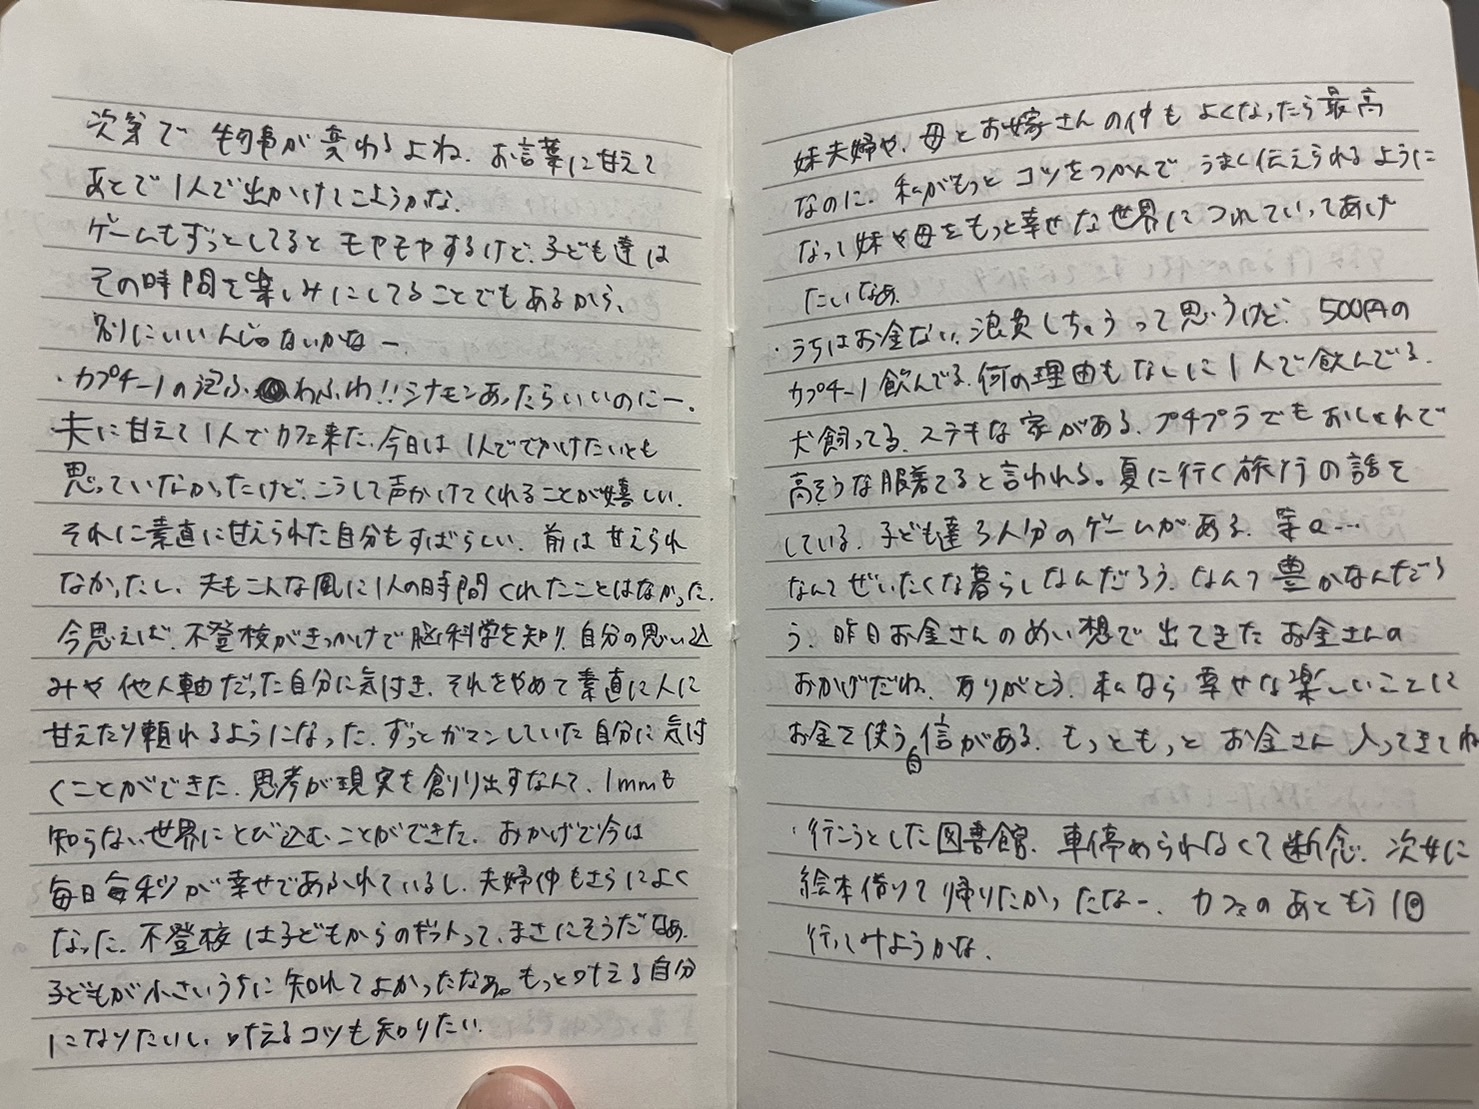 次第で物事が変わるよね。お言葉に甘えて
あとで1人で出かけてこようかな。
ゲームもずっとしてるとモヤモヤするけど、子ども達は
その時間を楽しみにしてることでもあるから、
別にいいんじゃないかなー
・カプチーノの泡ふわふわ!!シナモンあったらいいのにー。
夫に甘えて1人でカフェ来た。今日は1人ででかけたいとも
思っていなかったけど、こうして声かけてくれることが嬉しい。
それに素直に甘えられた自分もすばらしい。前は甘えられ
なかったし、夫もこんな風に1人の時間くれたことはなかった。
今思えば、不登校がきっかけで脳科学を知り、自分の思い込
みや他人軸だった自分に気付き、それをやめて素直に人に
甘えたり頼れるようになった。ずっとガマンしていた自分に気付
くことができた。思考が現実を創り出すなんて、1mmも
知らない世界にとび込むことができた。おかげで今は
毎日毎秒が幸せであふれているし、夫婦仲もさらによく
なった。不登校は子どもからのギフトって、まさにそうだなぁ。
子どもが小さいうちに知れてよかったなぁ。もっと叶える自分
になりたいし、叶えるコツも知りたい。
妹夫婦や、母とお嫁さんの仲もよくなったら最高
なのに。私がもっとコツをつかんで、うまく伝えられるように
なって妹や母をもっと幸せな世界につれていってあげ
たいなぁ。
・うちはお金ない、浪費しちゃうって思うけど、500円の
カプチーノ飲んでる。何の理由もなしに1人で飲んでる。
犬飼ってる。ステキな家がある。プチプラでもおしゃれで
高そうな服着てると言われる。夏に行く旅行の話を
している。子ども達3人分のゲームがある。等々…
なんてぜいたくな暮らしなんだろう。なんて豊かなんだろ
う。昨日お金さんのめい想で出てきたお金さんの
おかげだね。ありがとう。私なら幸せな楽しいことに
お金を使う自信がある。もっともっとお金さん入ってきてね
・行こうとした図書館、車停められなくて断念。次女に
絵本借りて帰りたかったなー。カフェのあともう1回
行ってみようかな。